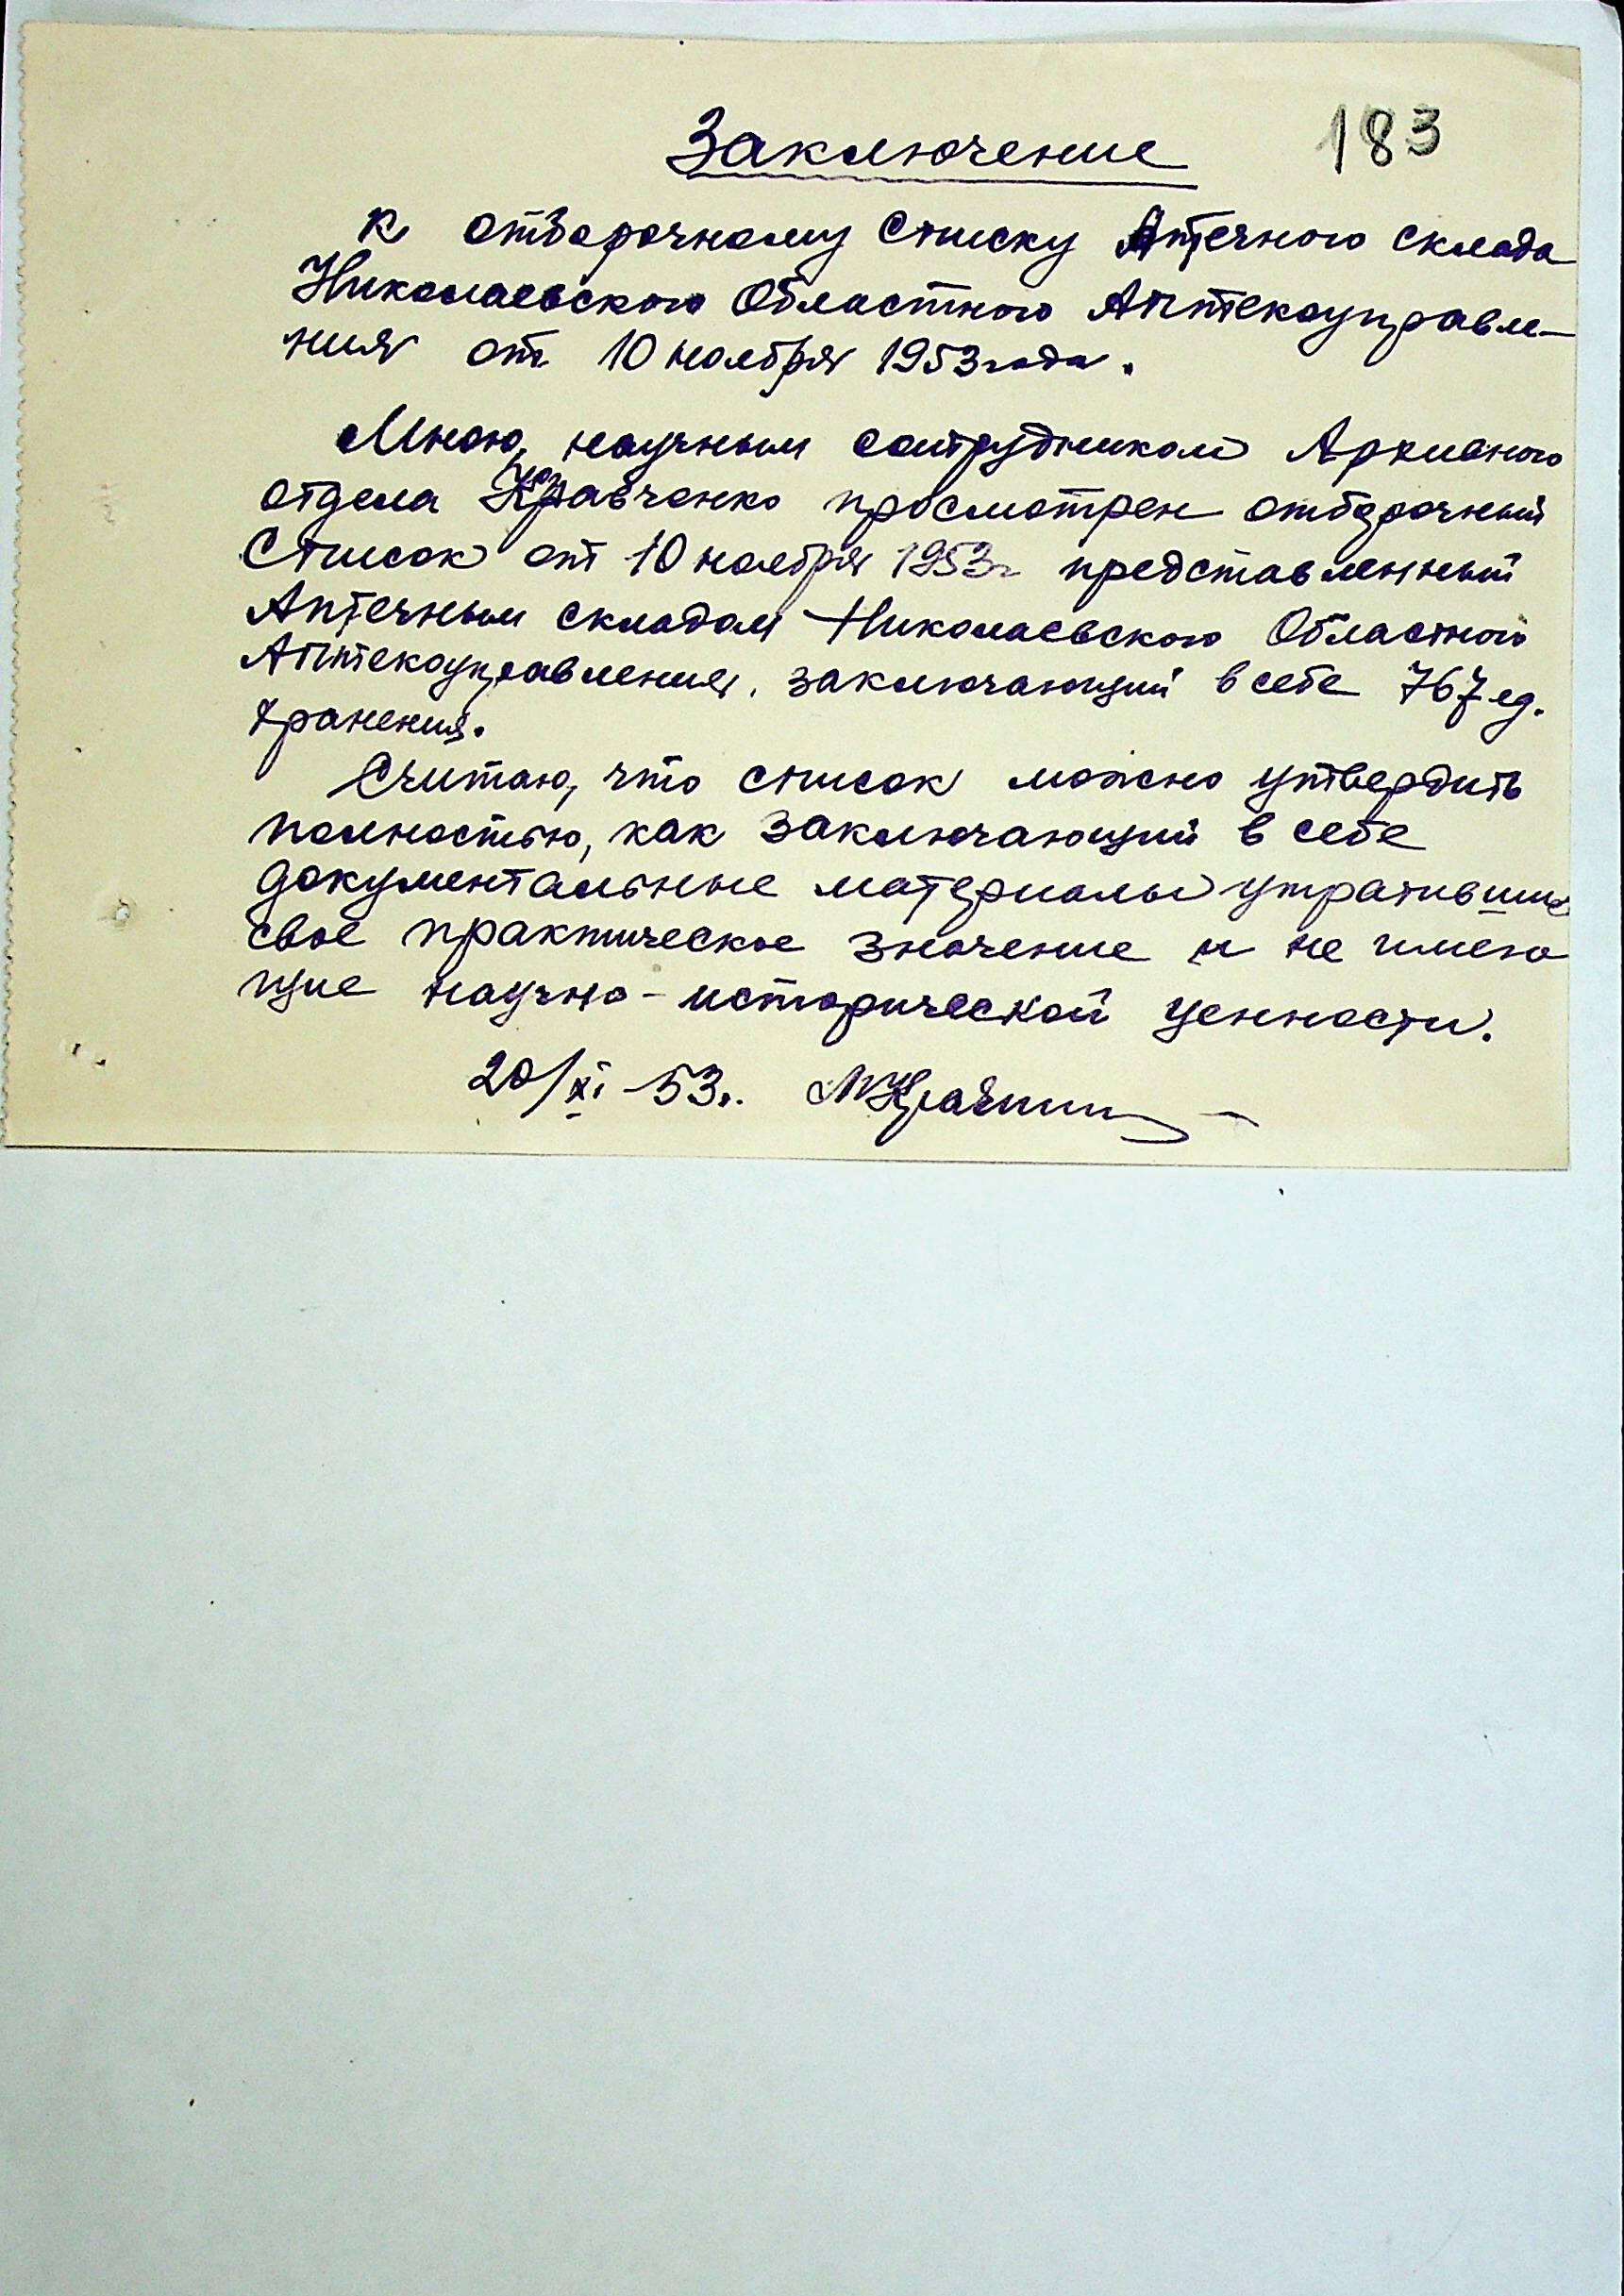 183
Заключение
к отборочному списку Аптечного склада
Николаевского Областного Аптекоуправле-
ния от 10 ноября 1953 года.
Мною, научным сотрудником Архивного
отдела Кравченко просмотрен отборочный
Список от 10 ноября 1953г представленный
Аптечным складом Николаевского Областного
Аптекоуправления, заключающий в себе 767 ед.
хранения.
Считаю, что список можно утвердить
полностью, как заключающий в себе
документальные материалы утратившие
свое практическое значение и не имею
щие научно-исторической ценности.
20/XI-53г.